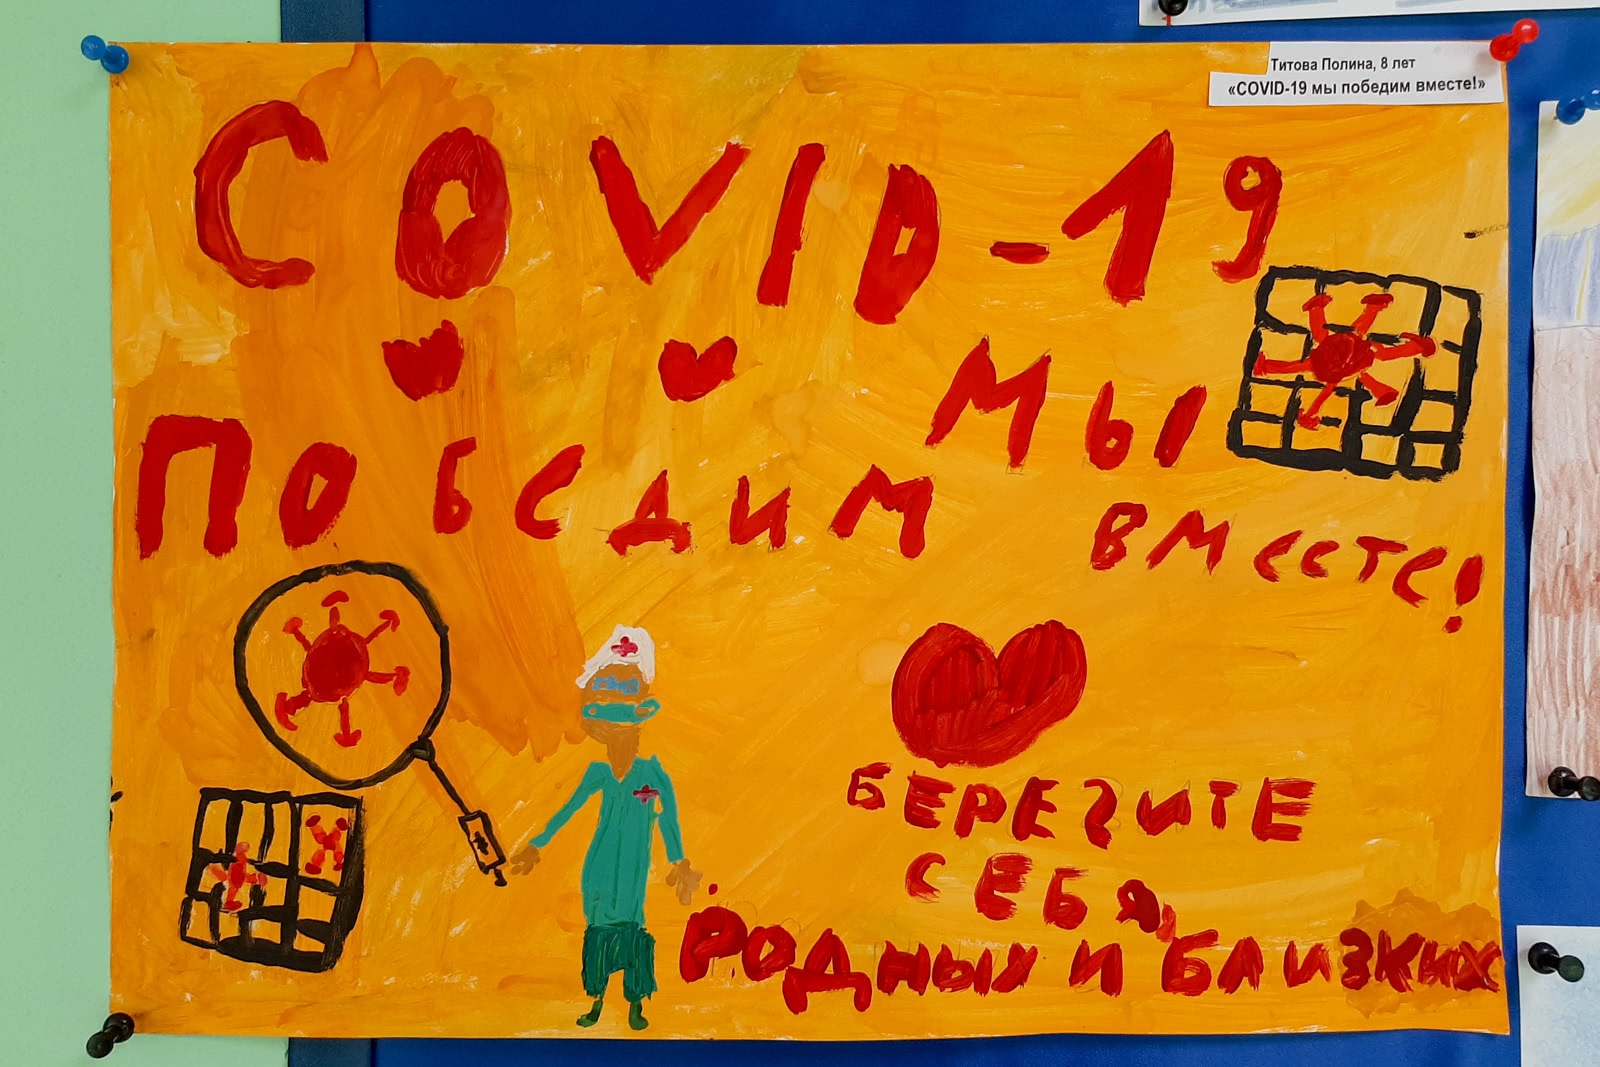 Титова Полина, 8 лет
«COVID-19 мы победим вместе!»
COVID-19
Мы
ПОБЕДИМ
ВМЕСТЕ!
БЕРЕГИТЕ
СЕБЯ,
РОДНЫХ И БЛИЗКИХ